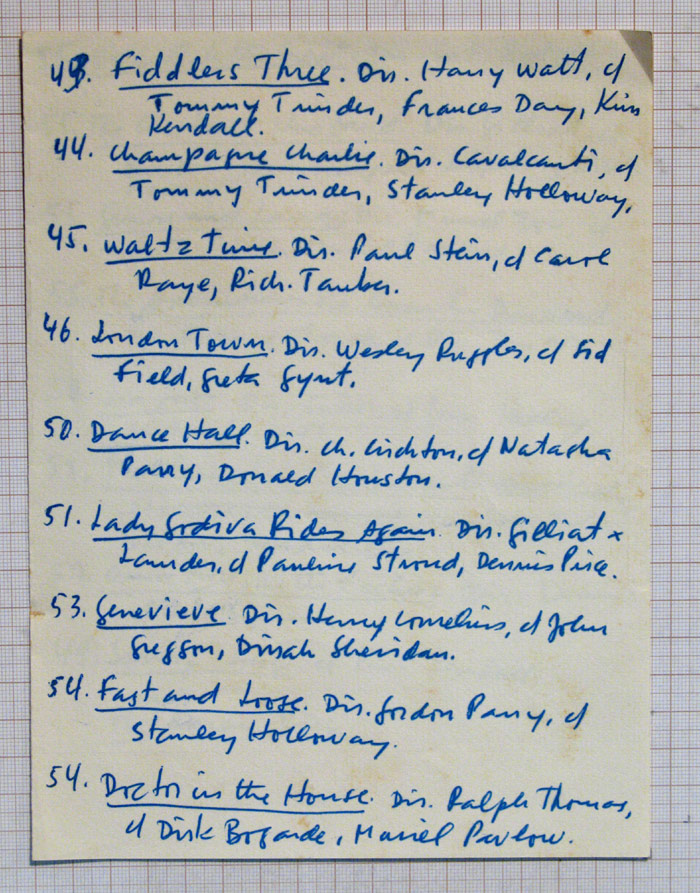 43. Fiddlers Three. Dir. Harry Watt, cf
Tommy Trinder, Frances Day, Kim
Kendall.
44. Champagne Charlie. Dir. Cavalcanti, cf
Tommy Trinder, Stanley Holloway.
45. Waltz Time. Dir. Paul Stein, cf Carol
Raye, Rich. Tauber.
46. London Town. Dir. Wesley Ruggles, cf Sid
Field, Greta Gynt.
50. Dance Hall. Dir. Ch. Crichton, cf Natasha
Parry, Donald Houston.
51. Lady Godiva Rides Again. Dir. Gilliat +
Launder, cf Pauline Stroud, Dennis Price.
53. Genevieve. Dir. Henry Cornelius, cf John
Gregson, Dinah Sheridan.
54. Fast and Loose. Dir. Gordon Parry, cf
Stanley Holloway.
54. Doctor in the House. Dir. Ralph Thomas,
cf Dirk Bogarde, Muriel Pavlow.